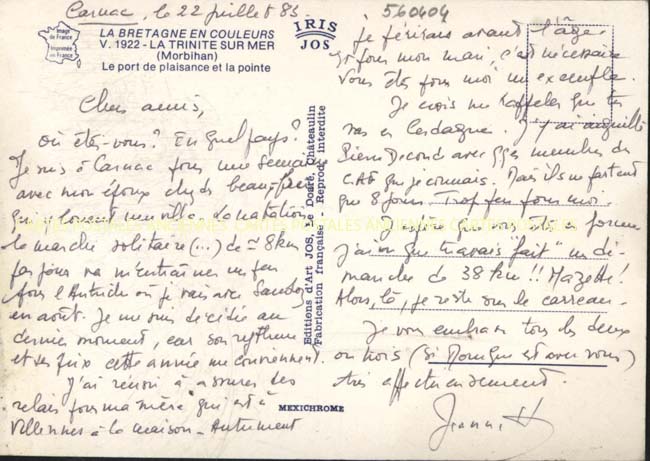 Carnac, le 22 juillet 83
560404
Image de France
Imprimée en France
LA BRETAGNE EN COULEURS
V. 1922 - LA TRINITE SUR MER
(Morbihan)
Le port de plaisance et la pointe
IRIS
JOS
Chers amis,
Où êtes-vous? En quel pays?
Je suis à Carnac pour une semaine
avec mon époux chez des beau-
qui louent une villa. La natation
le marche solitaire (...) de ≃ 8 km
par jour va m'entraîner un peu
pour l'Autriche où je vais avec
en août. Je me suis décidée au
dernier moment, car son rythme
et ses prix cette année me conviennent.
J'ai réussi à assurer des
relais pour ma mère qui est à
Villennes à la maison. Autrement
Editions d'Art JOS, Le Doaré, Châteaulin
Fabrication française Reprod. interdite
MEXICHROME
je périrais avant l'âge.
Et pour mon mari, c'est nécessaire
Vous êtes pour moi un exemple.
Je crois me rappeler que tu
vas en Cerdagne. J'y ai aiguillé
Pierre avec qqes membres du
CAF que je connais. Mais ils ne partent
que 8 jours. Trop peu pour moi.
J'espère que vous êtes en forme
J'ai vu que tu avais "fait" un di-
manche de 38 km!! Mazette!
Alors, là, je reste sur le carreau.
Je vous embrasse tous les deux
ou trois (si Monique est avec vous)
très affectueusement.
CARTES POSTALES ANCIENNES